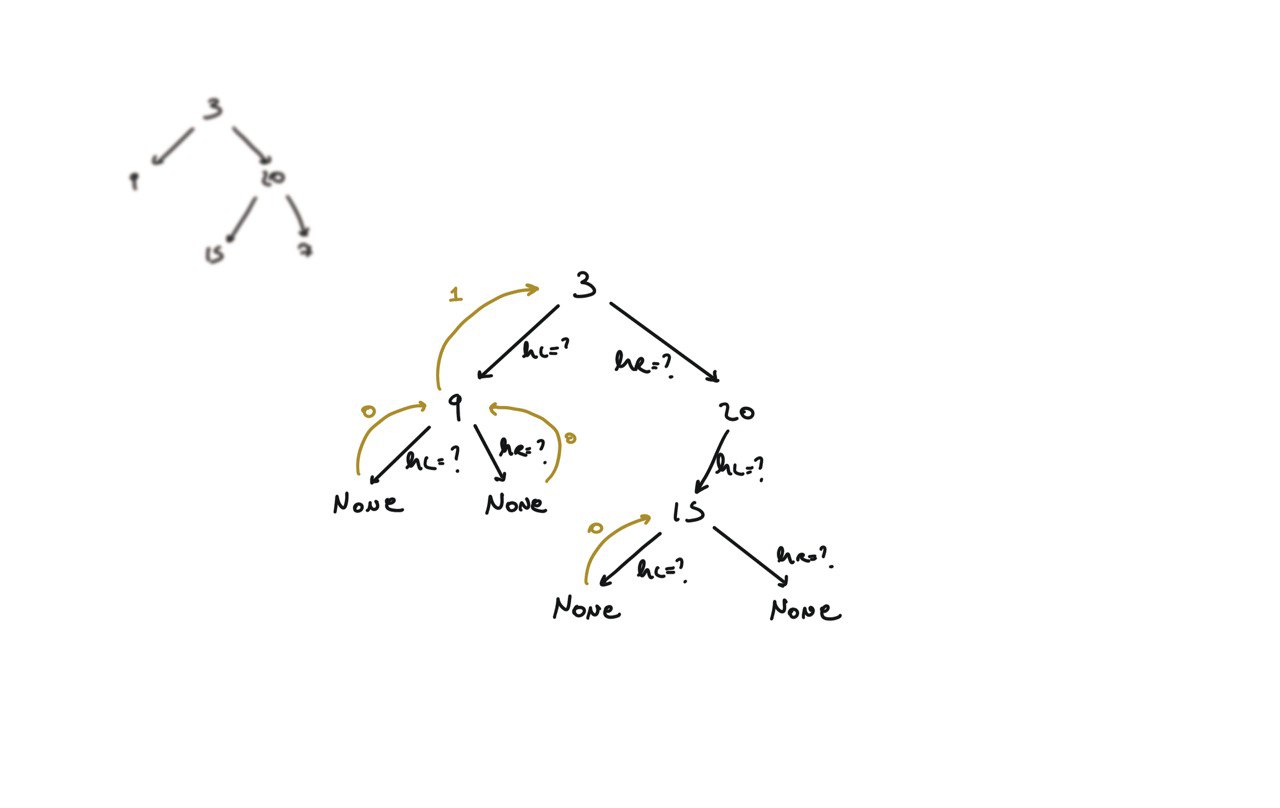 3
9 20
15 7
3
1
hL=?
hR=?
0 9 0
20
hL=? hR=?
hL=?
None None
15
0
hL=? hR=?
None None